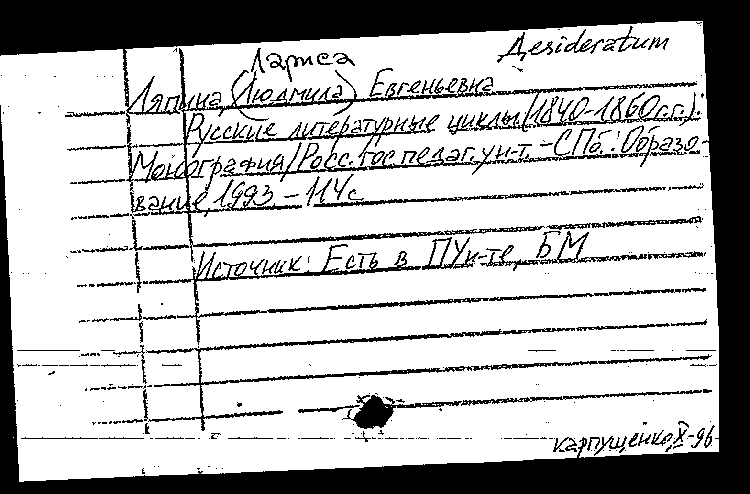 Лариса Desideratum
Ляпина, (Людмила) Евгеньевна
Русские литературные циклы (1840-1860 г.г.):
Монография/Росс. гос педаг. ун-т. - СПб.: Образо-
вание, 1993 - 114 с
Источник: Есть в ПУн-те, БМ
Карпущенко, X-96